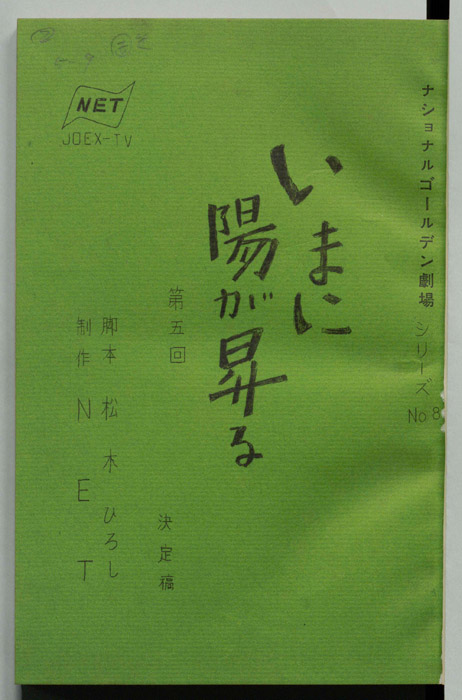 ナショナルゴールデン劇場 シリーズ No 8
いまに
陽が昇る
第五回
決定稿
脚本 松木ひろし
制作 NET
NET
JOEX-TV